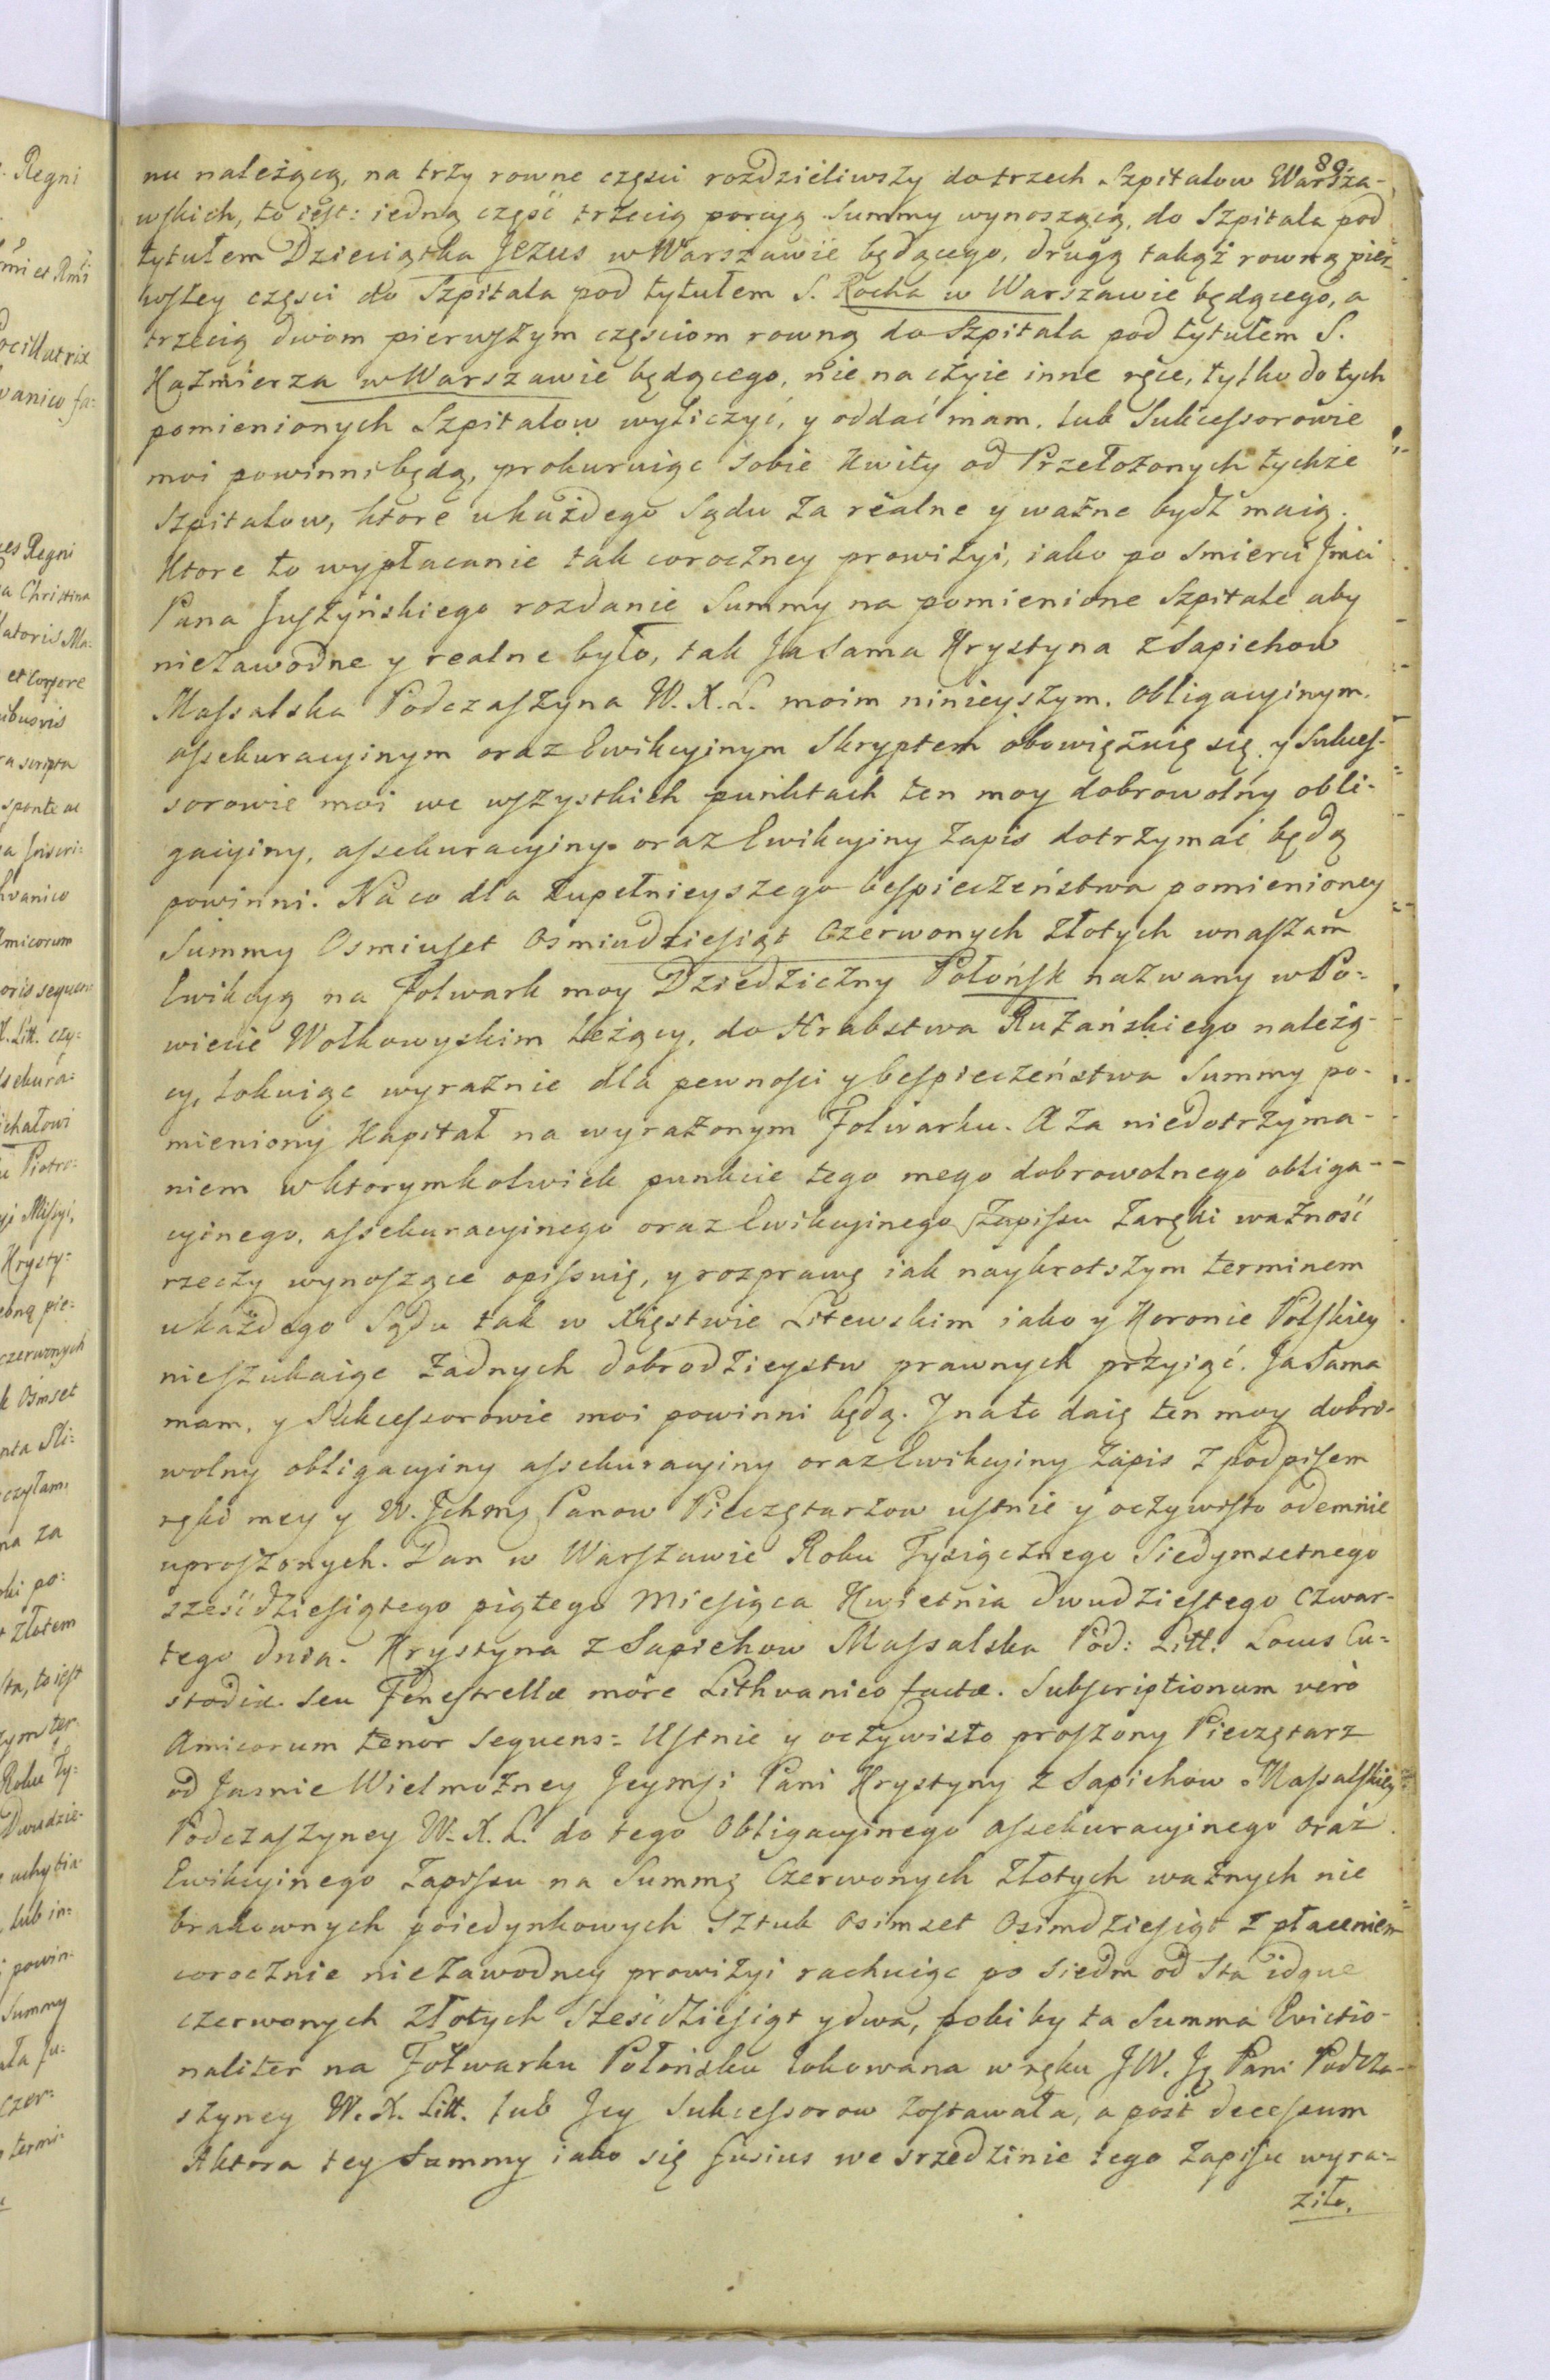 89.
nu należącą, na trzy rowne części rozdzieliwszy do trzech Szpitalow Warsza-
wskich, to iest: iedną część trzecią porcyą Summy wynoszącą, do Szpitala pod
tytułem Dzieciątka Jezus w Warszawie będącego, drugą takąż rowną pier-
wszey części do Szpitala pod tytułem S. Rocha w Warszawie będącego, a
trzecią dwom pierwszym częściom rowną do Szpitala pod tytułem S.
Kaźmierza w Warszawie będącego, nie na czyie inne ręce, tylko do tych
pomienionych Szpitalow wyliczyć, y oddać mam, lub Sukcessorowie
moi powinni będą, prokuruiąc sobie Kwity od Przełożonych tychże
Szpitalow, ktore u każdego Sądu za realne y ważne bydź maią.
Ktore to wypłacanie tak coroczney prowizyi, iako po smierci Jmci
Pana Juszyńskiego rozdanie Summy na pomienione Szpitale aby
niezawodne y realne było, tak Ja Sama Krystyna z Sapiehow
Massalska Podczaszyna W. X. L. moim ninieyszym, Obligacyinym,
assekuracyinym oraz Ewikcyinym Skryptem obowięzuię się, y Sukces-
sorowie moi we wszystkich punktach ten moy dobrowolny obli-
gacyiny, assekuracyiny, oraz Ewikcyiny zapis dotrzymać będą
powinni. Na co dla zupełnieyszego bespieczeństwa pomienioney
Summy Osmiuset Osmiudziesiąt Czerwonych Złotych wnaszam
Ewikcyą na Folwark moy Dziedziczny Połońsk nazwany w Po-
wiecie Wołkowyskim leżący, do Hrabstwa Rużańskiego należą-
cy, lokuiąc wyraźnie dla pewności y bespieczeństwa Summy po-
mieniony Kapitał na wyrażonym Folwarku. A za niedotrzyma-
niem w ktorymkolwiek punkcie tego mego dobrowolnego obliga-
cyinego, assekuracyinego oraz Ewikcyinego Zapissu Zaręki ważność
rzeczy wynoszące opissuię, y rozprawę iak naykrotszym terminem
u każdego Sądu tak w Xięstwie Litewskim iako y Koronie Polskiey
nieszukaiąc żadnych dobrodzieystw prawnych przyiąć. Ja Sama
mam, y Sukcessorowie moi powinni będą. Y na to daię ten moy dobro-
wolny obligacyiny assekuracyiny oraz Ewikcyiny zapis z podpisem
ręki mey y W. Ichmę Panow Pieczętarzow ustnie y oczywisto odemnie
uproszonych. Dan w Warszawie Roku Tysiącznego Siedymsetnego
sześćdziesiątego piątego Miesiąca Kwietnia dwudziestego czwar-
tego dnia. Krystyna z Sapiehow Massalska Pod: Litt. Locus Cu-
stodiæ seu Fenestrellæ more Lithvanico factæ. Subscriptionum verò
Amicorum tenor sequens: Ustnie y oczywisto proszony Pieczętarz
od Jasnie Wielmożney Jeymsi Pani Krystyny z Sapiehow Massalskiey
Podczaszyney W. X. L. do tego Obligacyinego assekuracyinego oraz
Ewikcyinego Zapissu na Summę Czerwonych Złotych ważnych nie
brakownych poiedynkowych sztuk Osimset Osimdziesiąt z płaceniem
corocznie niezawodney prowizyi rachuiąc po siedm od sta idque
czerwonych Złotych Sześćdziesiąt y dwa, poki by ta Summa Evictio-
naliter na Folwarku Połońsku lokowana w ręku JW. Ję Pani Podcza-
szyney W. X. Litt. lub Jey Sukcessorow zostawała, a post decessum
Aktora tey Summy iako się fusius we srzedzinie tego Zapisu wyra-
ziło.